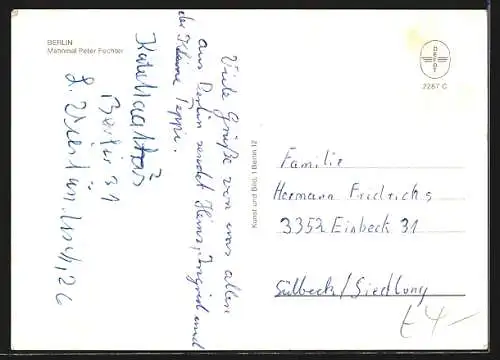 BERLIN
Mahnmal Peter Fechter
Viele Grüße von uns allen
aus Berlin sendet Heinz, Ingrid und
der kleine Teppi.
Berlin 31
Kunst und Bild, 1 Berlin 12
DEFOT
2287 C
Familie
Hermann Friedrichs
3352 Einbeck 31
Sülbeck/Siedlung